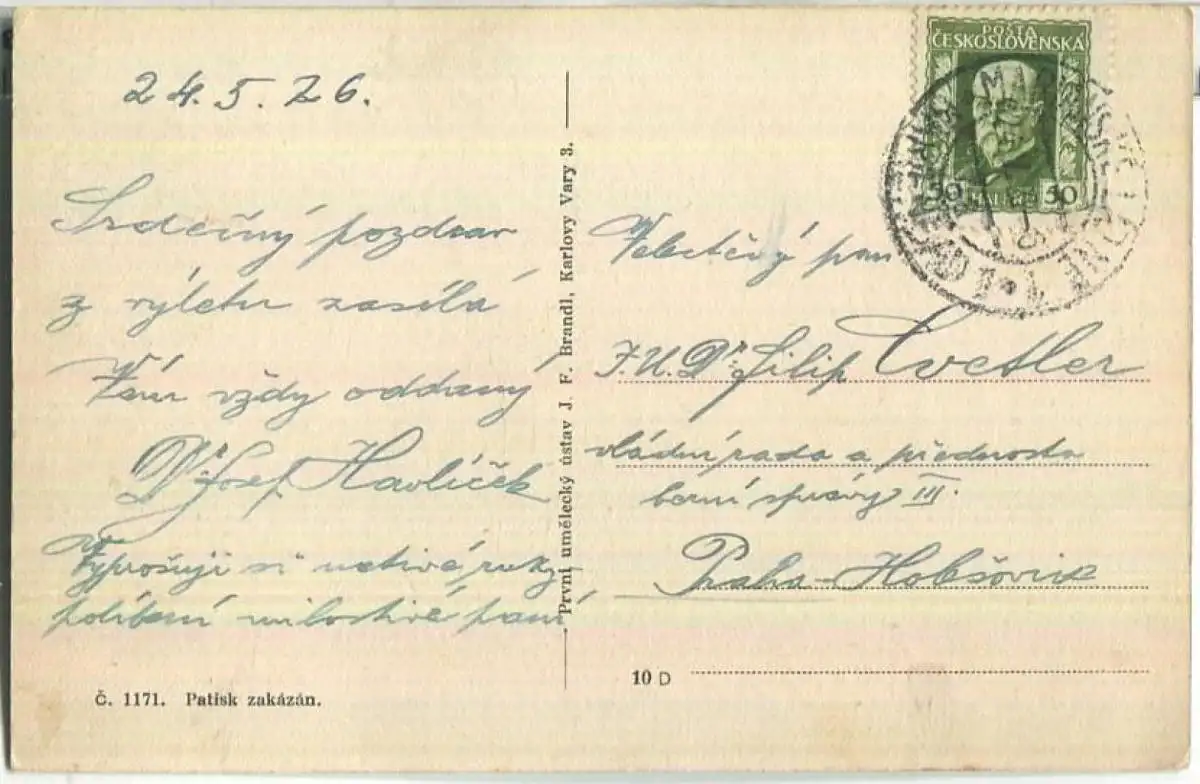 24.5.26.
Srdečný pozdrav
z výletu zasílá
Vám vždy oddaný
Dr Josef Havlíček
Vyprošuji si uctivé ruky-
políbení milostivé paní
Č. 1171. Patisk zakázán.
První umělecký ústav J. F. Brandl, Karlovy Vary 3.
POŠTA
ČESKOSLOVENSKÁ
50 50
Velectěný pan
J.U.Dr. Filip
vládní rada a přednosta
berní správy III.
Praha-
10 D